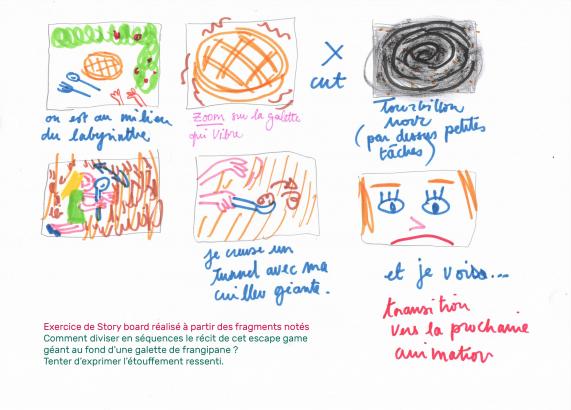 on est au milieu
du labyrinthe
Zoom sur la galette
qui vibre
X
cut
Tourbillon
noir
(par dessus petites
tâches)
je creuse un
tunnel avec ma
cuiller géante.
et je vois...
transition
vers la prochaine
animation
Exercice de Story board réalisé à partir des fragments notés
Comment diviser en séquences le récit de cet escape game
géant au fond d'une galette de frangipane ?
Tenter d'exprimer l'étouffement ressenti.